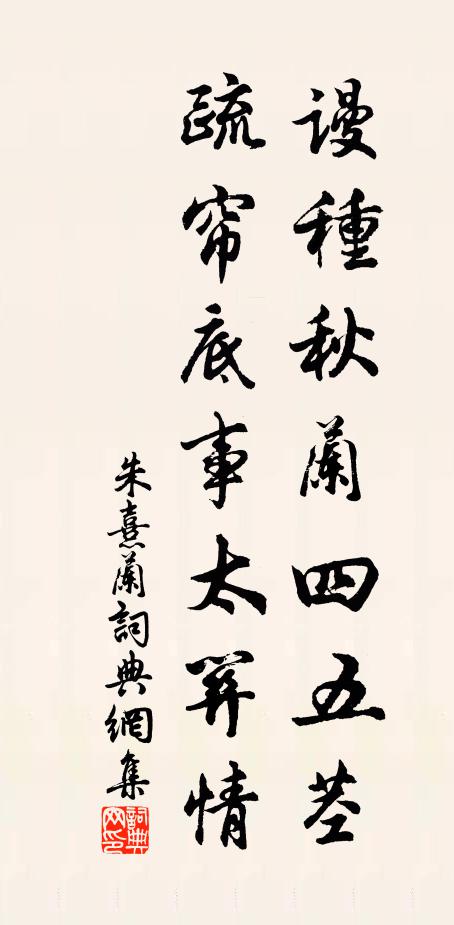 謾種秋蘭四五茎
疏帘底事太關情
朱熹蘭詞典網集
詞典
网印